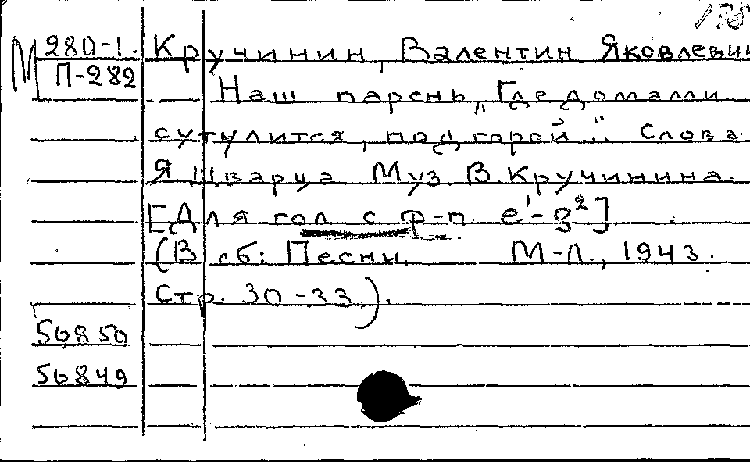 178
М 280-1. Кручинин, Валентин Яковлевич
П-282
Наш парень „Где домами
сутулится, под горой". Слова
Я Шварца Муз. В. Кручинина.
[Для гол с ф-п e¹-g²]
(В сб: Песни. М-Л., 1943.
Стр. 30-33).
56850
56849